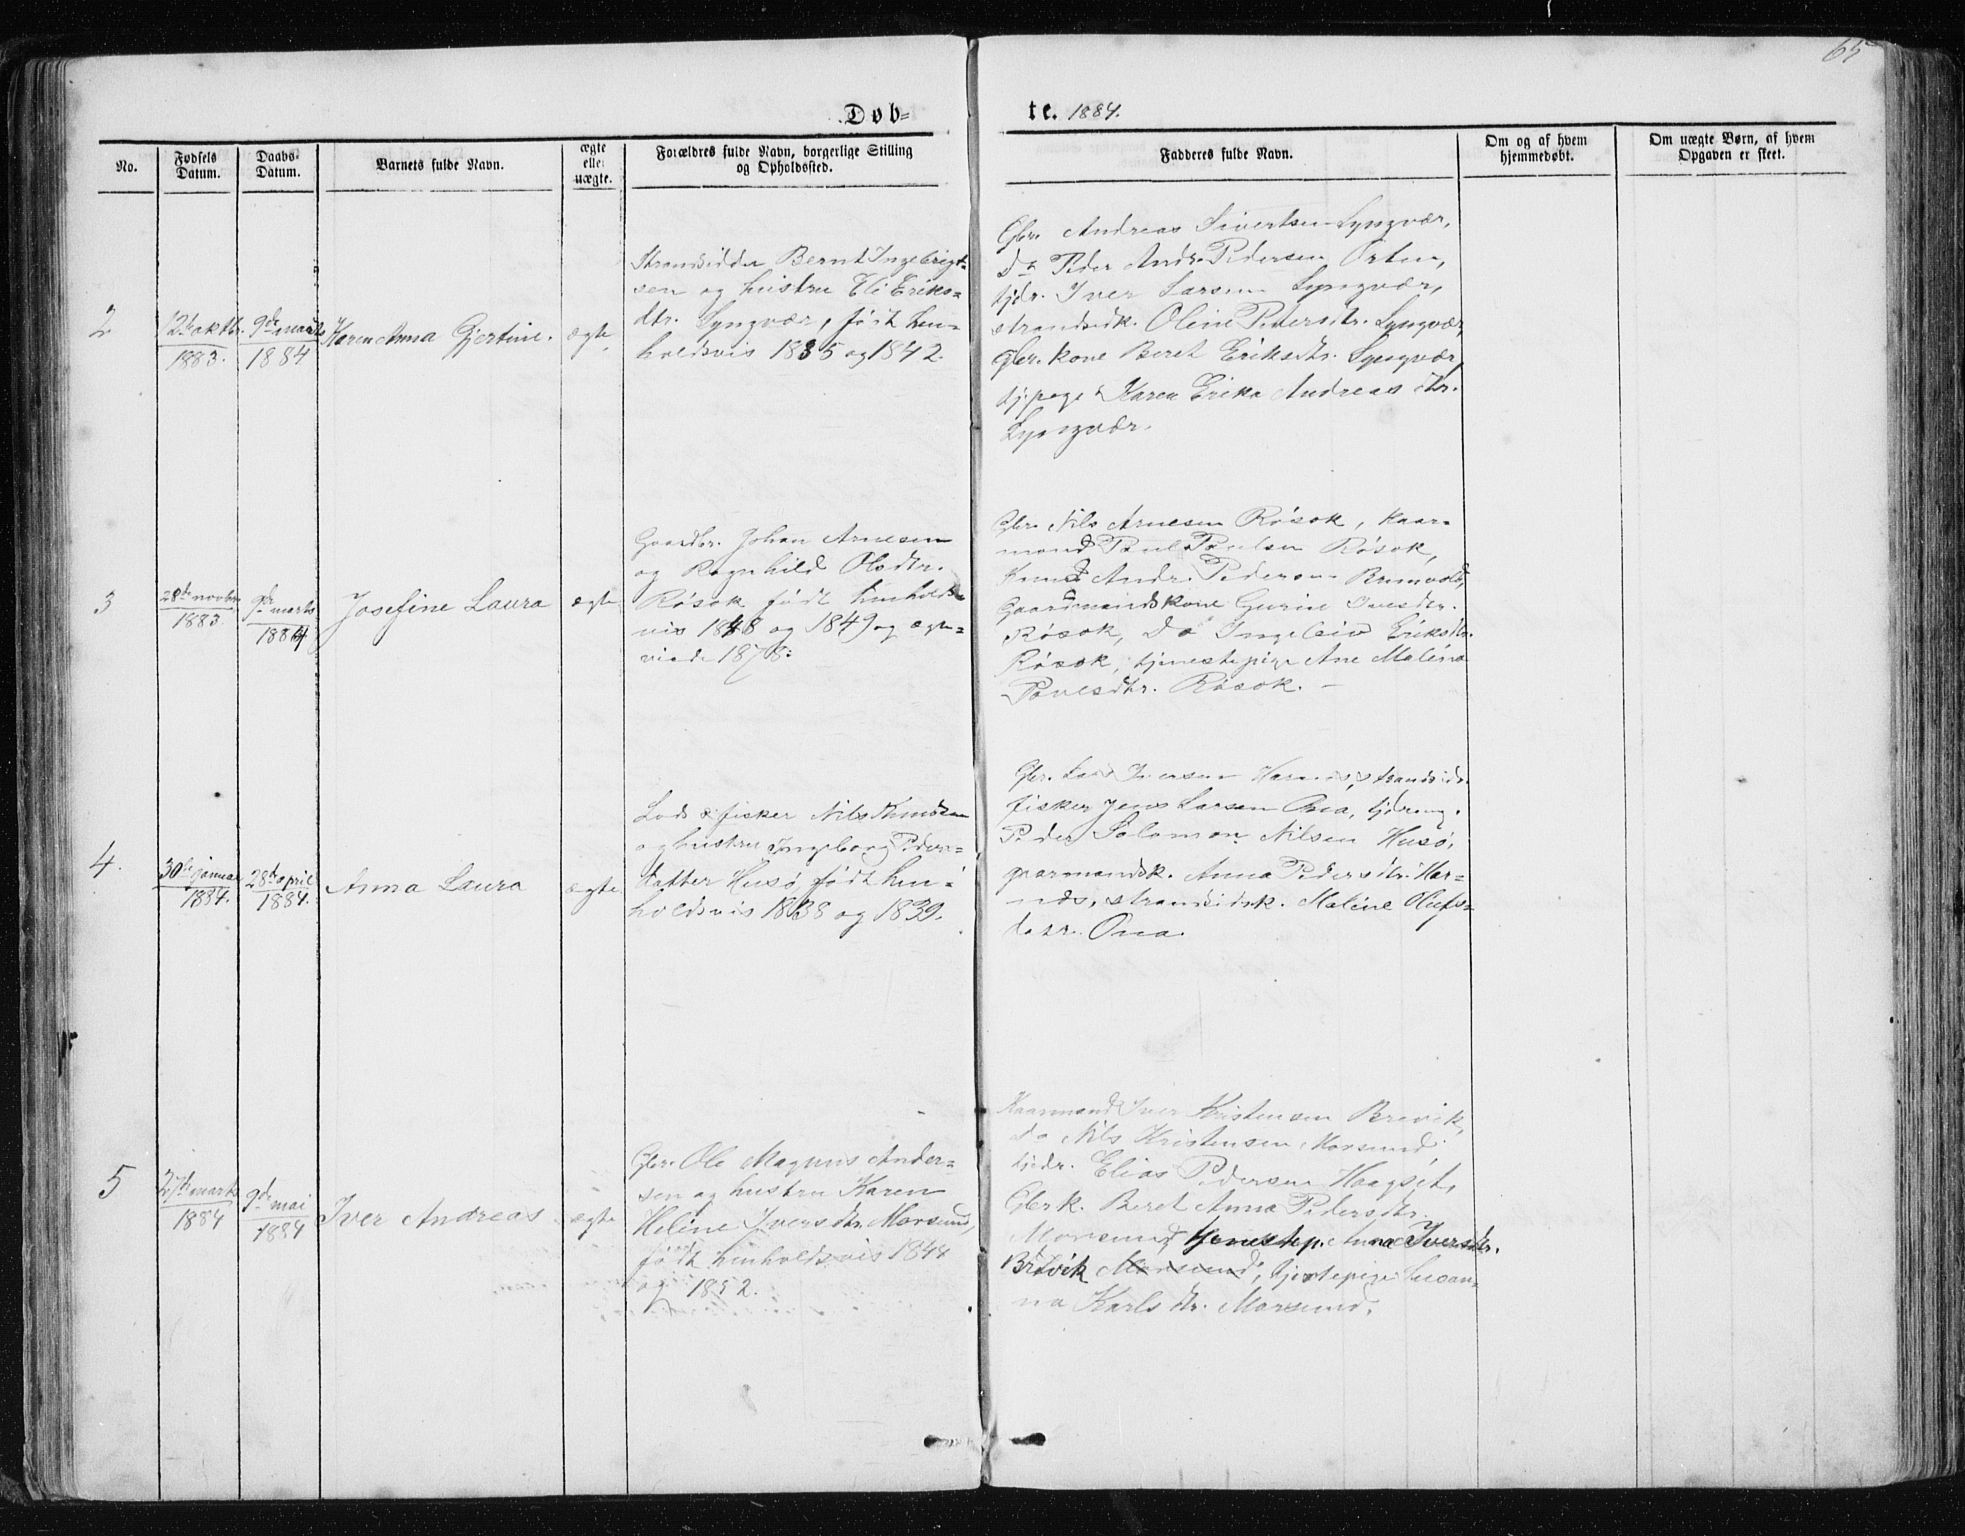 65
Døb=
te. 1884.
No.
Fødsels Datum.
Daabs- Datum.
Barnets fulde Navn.
ægte eller uægte.
Forældres fulde Navn, borgerlige Stilling og Opholdssted.
Fadderes fulde Navn.
Om og af hvem hjemmedøbt.
Om uægte Børn, af hvem Opgaven er skeet.
2
12te oktbr. 1883.
9de marts 1884
Karen Anna Gjertine.
ægte
Strandsidder Bernt Ingebrigt=
sen og hustru Eli Eriks=
dtr. Lyngvær, født hen=
holdsvis 1835 og 1842.
Gbr. Andreas Sivertsen Lyngvær,
Do Peder Andr. Pedersen Orten,
tjdr. Iver Larsen Lyngvær,
strandsidk. Oline Pedersdtr. Lyngvær,
gbr. kone Beret Eriksdtr. Lyngvær,
tj.pige Karen Erika Andreasdtr.
Lyngvær.
3
28de novbr. 1883.
9de marts 1884
Josefine Laura
ægte
Gaardbr. Johan Arnesen
og Ragnhild Olsdtr.
Røsok født henholds=
vis 1848 og 1849 og ægte=
viede 1878.
Gbr. Nils Arnesen Røsok, kaar=
mand Poul Poulsen Røsok,
Andr. Pedersen
Gaardmandskone Gurine
Røsok, Do Eriksdtr.
Røsok, tjenestepige Ane Malena
Røsok. –
4.
30te januar 1884.
28de april 1884.
Anna Laura
ægte
Lods & fisker Nils Knudsen
og hustru Ingeborg Peders=
datter Husø, født hen=
holdsvis 1838 og 1839.
Gbr. Iversen strandsid.
fisker Jens Larsen Ona, tjdreng.
Peder Salomon Nilsen Husø,
gaarmandsk. Anna Pedersdtr. Har=
nds, strandsidsk. Maline Olufs=
datr. Ona.
5
27de marts 1884
9de mai 1884
Iver Andreas
ægte
Gbr. Ole Magnus Ander=
sen og hustru Karen
Heline Iversdtr. Morsund,
født henholdsvis 1844
og 1852.
Kaarmand Iver Kristensen Brevik,
do Nils Kristensen Morsund,
tjedr. Elias Pedersen Haagset,
Gbr k. Beret Anna Pedersdtr.
Morsund, tjenestep. Anna Iversdtr.
Brevik Morsund, tjestepige Susan=
na Karlsdtr. Morsund.